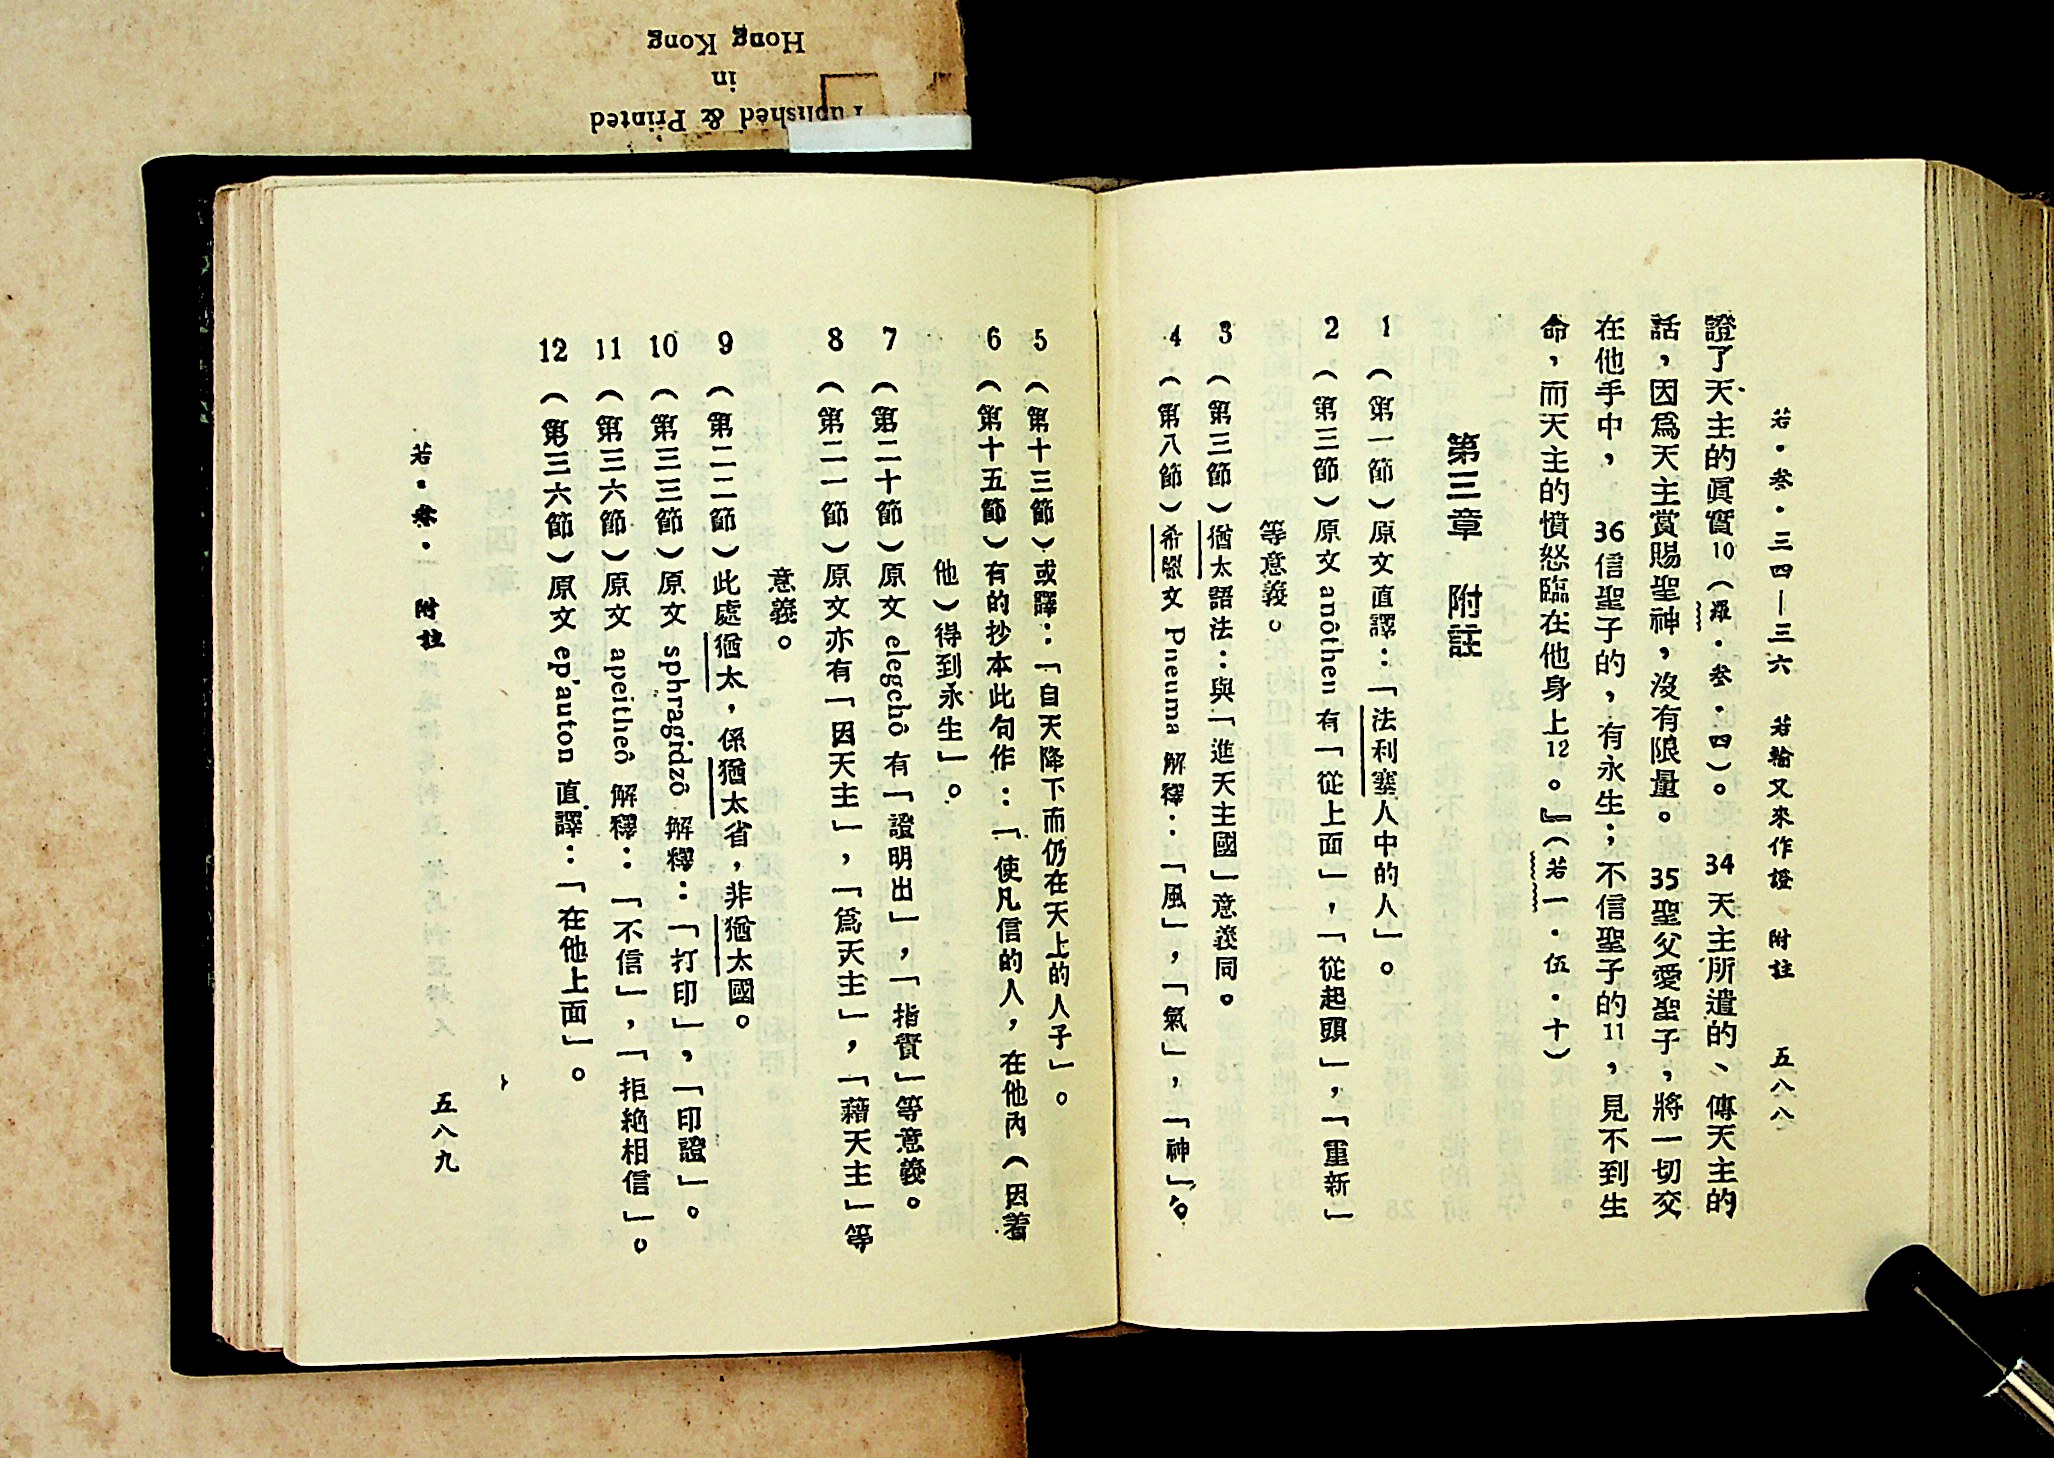 若・叁・三四—三六　若翰又來作證　附註　五八八
證了天主的眞實10（羅・叁・四）。　34天主所遣的、傳天主的
話，因爲天主賞賜聖神，沒有限量。　35聖父愛聖子，將一切交
在他手中，　36信聖子的，有永生；不信聖子的11，見不到生
命，而天主的憤怒臨在他身上12。』（若一・伍・十）
第三章　附註
1（第一節）原文直譯：「法利塞人中的人」。
2（第三節）原文 anôthen 有「從上面」，「從起頭」，「重新」
等意義。
3（第三節）猶太語法：與「進天主國」意義同。
4（第八節）希臘文 Pneuma 解釋：「風」，「氣」，「神」。
5（第十三節）或譯：「自天降下而仍在天上的人子」。
6（第十五節）有的抄本此句作：「使凡信的人，在他內（因着
他）得到永生」。
7（第二十節）原文 elegchô 有「證明出」，「指責」等意義。
8（第二一節）原文亦有「因天主」，「爲天主」，「藉天主」等
意義。
9（第二二節）此處猶太，係猶太省，非猶太國。
10（第三三節）原文 sphragidzô 解釋：「打印」，「印證」。
11（第三六節）原文 apeitheô 解釋：「不信」，「拒絕相信」。
12（第三六節）原文 ep'auton 直譯：「在他上面」。
若・叁・一　附註　五八九
Published & Printed
in
Hong Kong